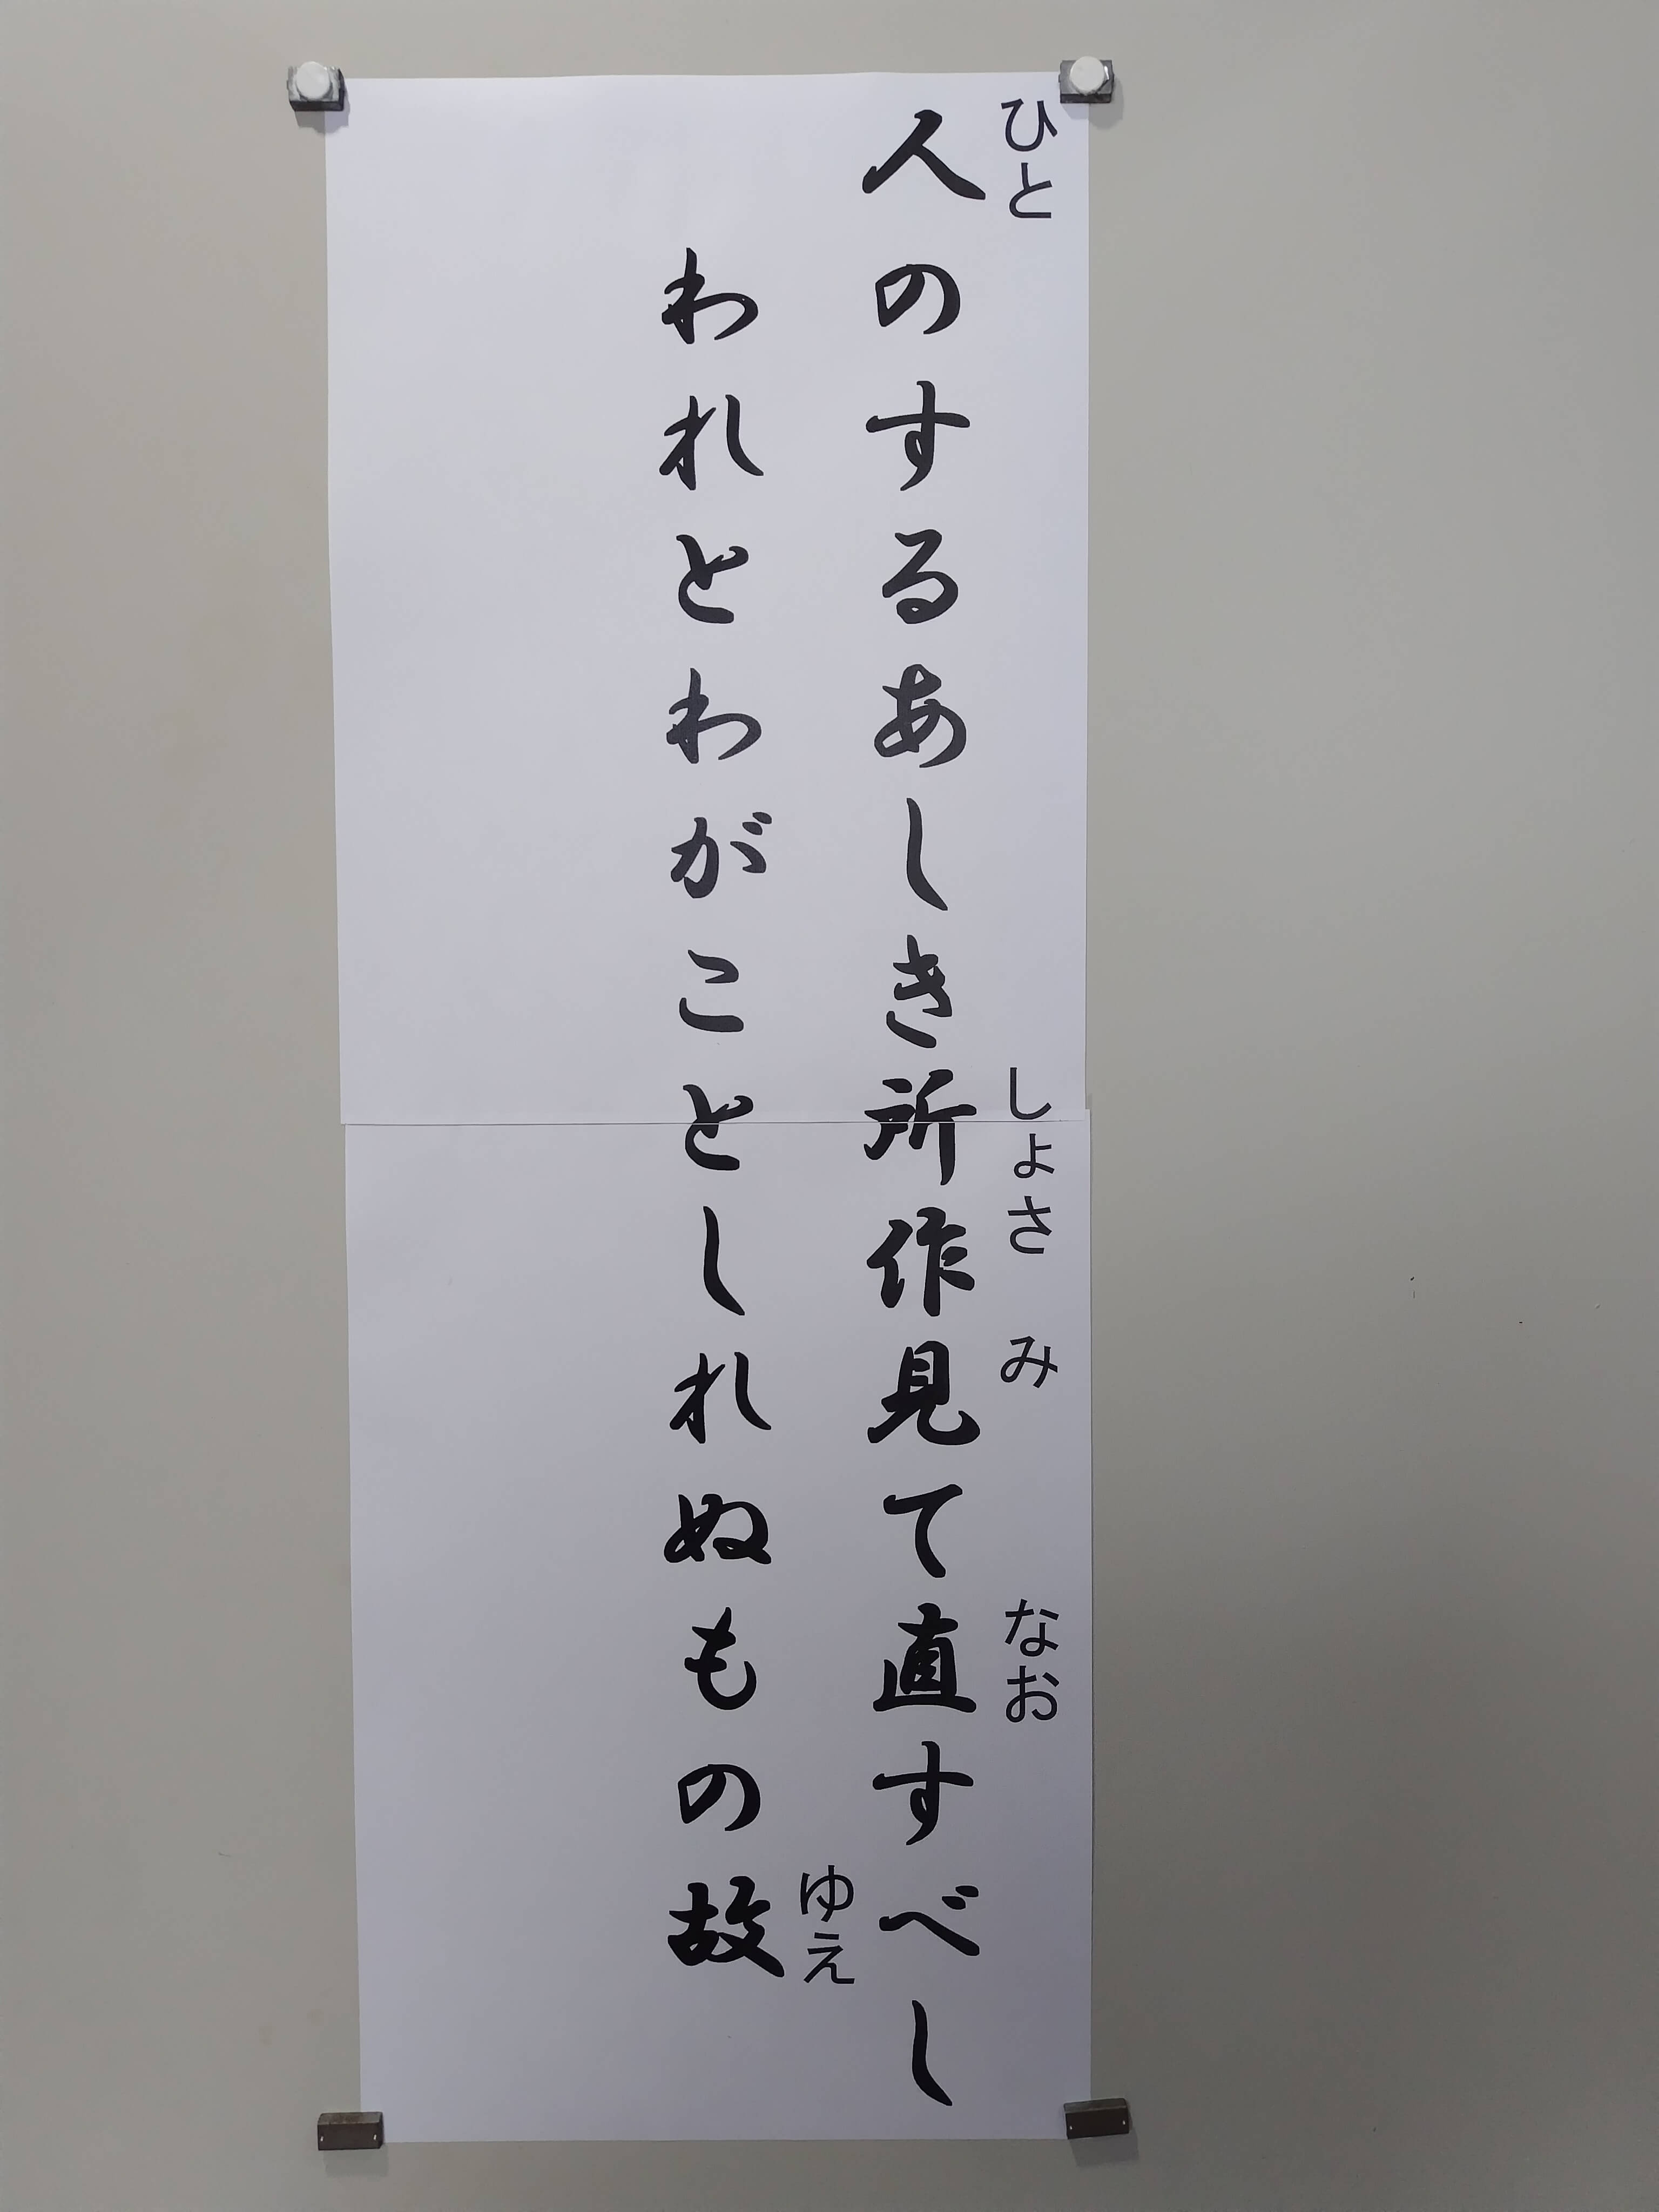 人のするあしき所作見て直すべし
われとわがこととしれぬもの故
ひと
しょさ
み
なお
ゆえ